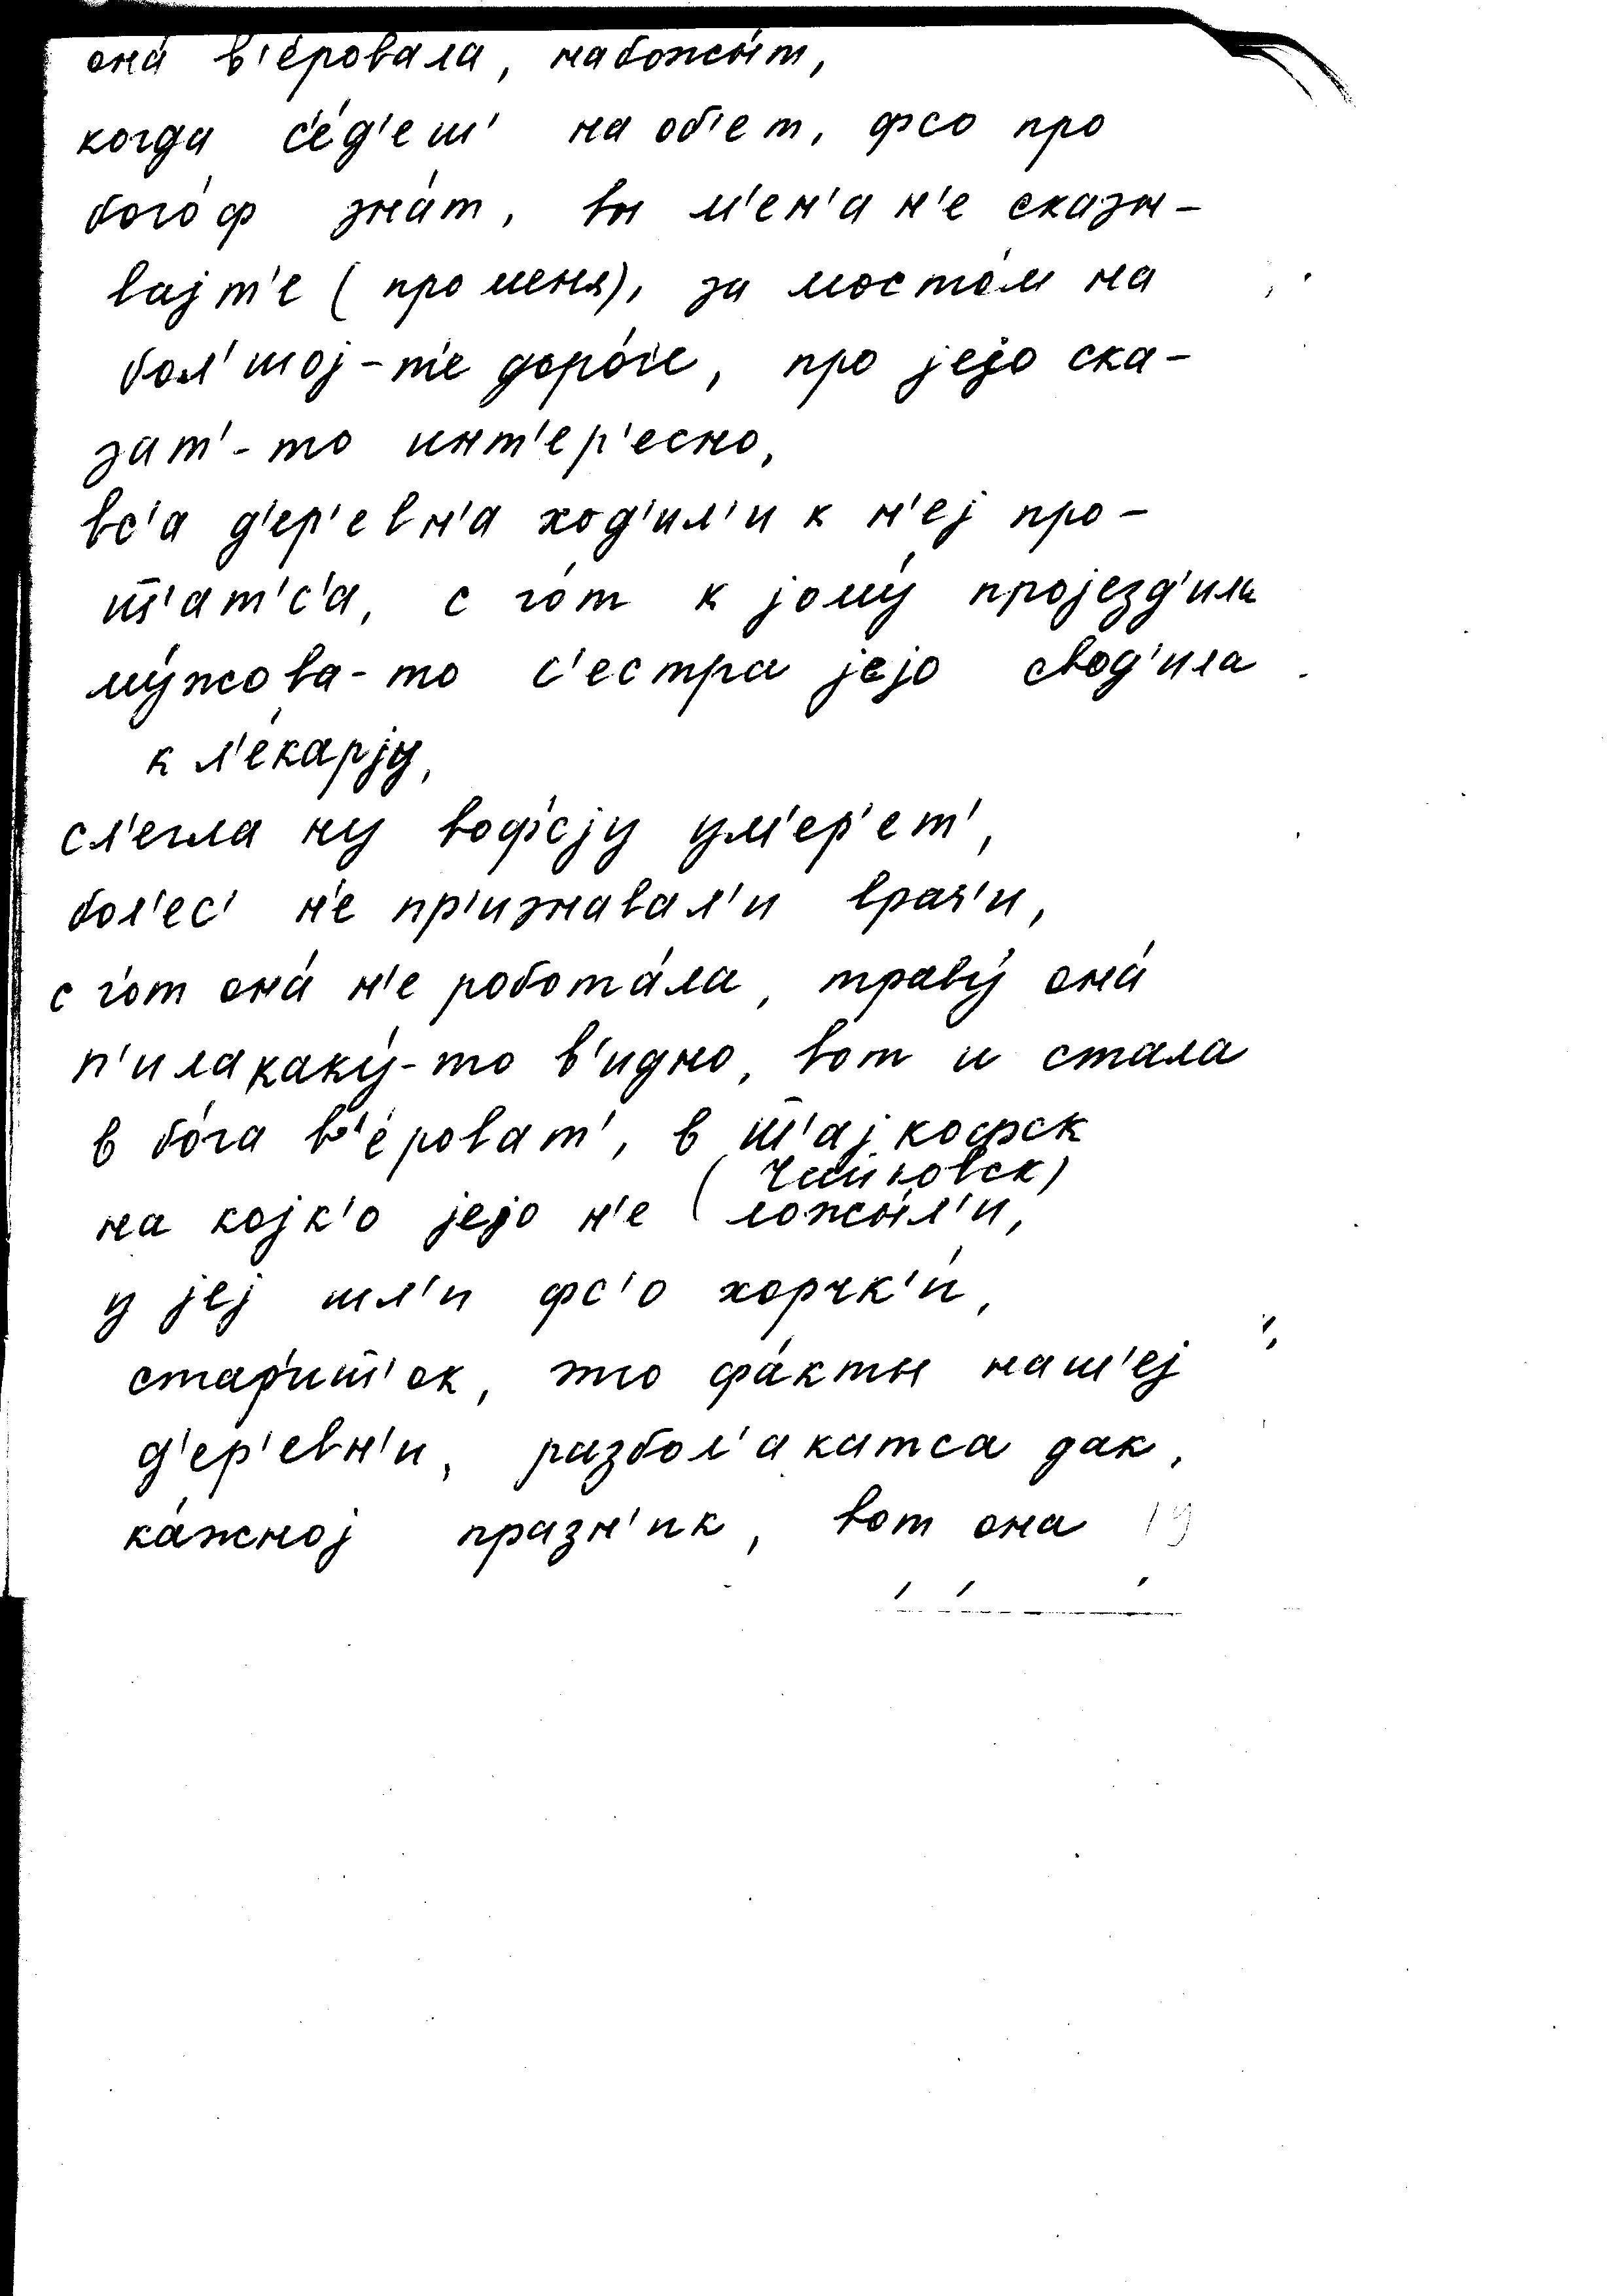 она́ в'е́ровала, набожы́т,
когда с'е́д'еш' на об'ет, фсо про
бого́ф зна́т, вы м'ен'а н'е сказы-
вајт'е (про меня), за мосто́м на
бол'шој-т'е доро́г'е, про јејо ска-
зат'-то инт'ер'есно,
вс'а д'ер'евн'а ход'ил'и к н'еј про-
ш̅'ат'с'а, с го́т к јому́ пројезд'ила
му́жова-то с'естра јејо свод'ила
к л'е́карју,
сл'егла ну воф'сју ум'ер'ет',
бол'ес' н'е пр'изнавал'и врач'и,
с го́т она́ н'е робота́ла, траву́ она́
п'ила каку́-то в'идно, вот и стала
в бо́га в'е́роват', в т̅ш'ајкофск
(Чайковск)
на којк'о јејо н'е ложы́л'и,
у јеј шл'и фс'о хорчк'и́,
стар'иш̅'ок, это фа́кты наш'еј
д'ер'евн'и, разбол'акатса дак,
ка́жној празн'ик, вот она